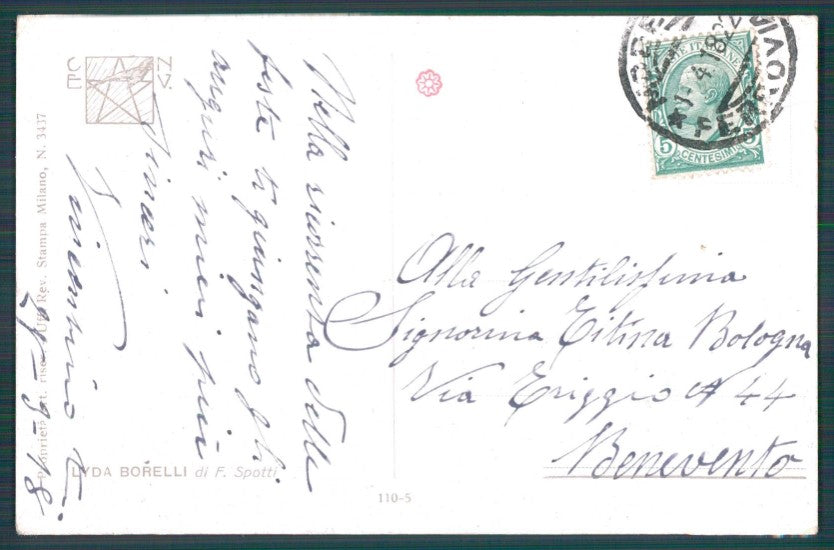 C E N V.
Proprietà art. ris. Uff. Rev. Stampa Milano, N. 3437
LYDA BORELLI di F. Spotti
110-5
Nella ricorrenza delle
feste ti giungano gli
auguri miei più
sinceri
29-9-18
POSTE ITALIANE
5
CENTESIMI
FERROVIA
Alla Gentilissima
Signorina Titina Bologna
Via Eriggio N 44
Benevento